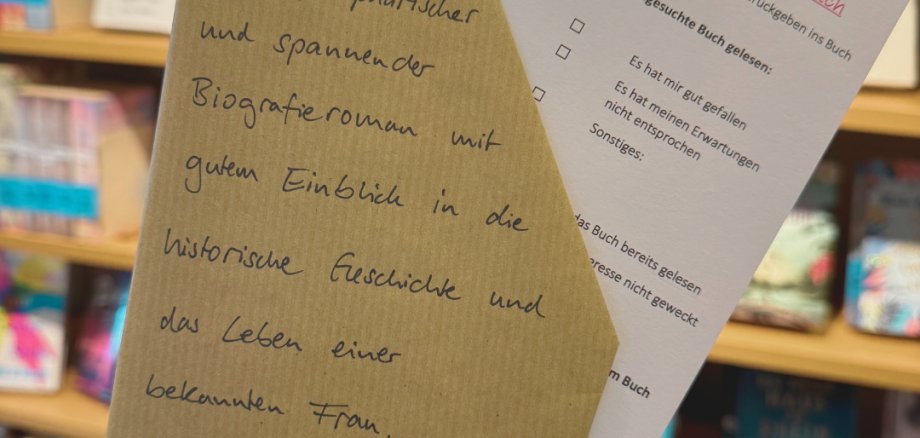 und spannender
Biografieroman mit
gutem Einblick in die
historische Geschichte und
das Leben einer
bekannten Frau.
rückgeben ins Buch
gesuchte Buch gelesen:
Es hat mir gut gefallen
Es hat meinen Erwartungen
nicht entsprochen
Sonstiges:
das Buch bereits gelesen
eresse nicht geweckt
m Buch